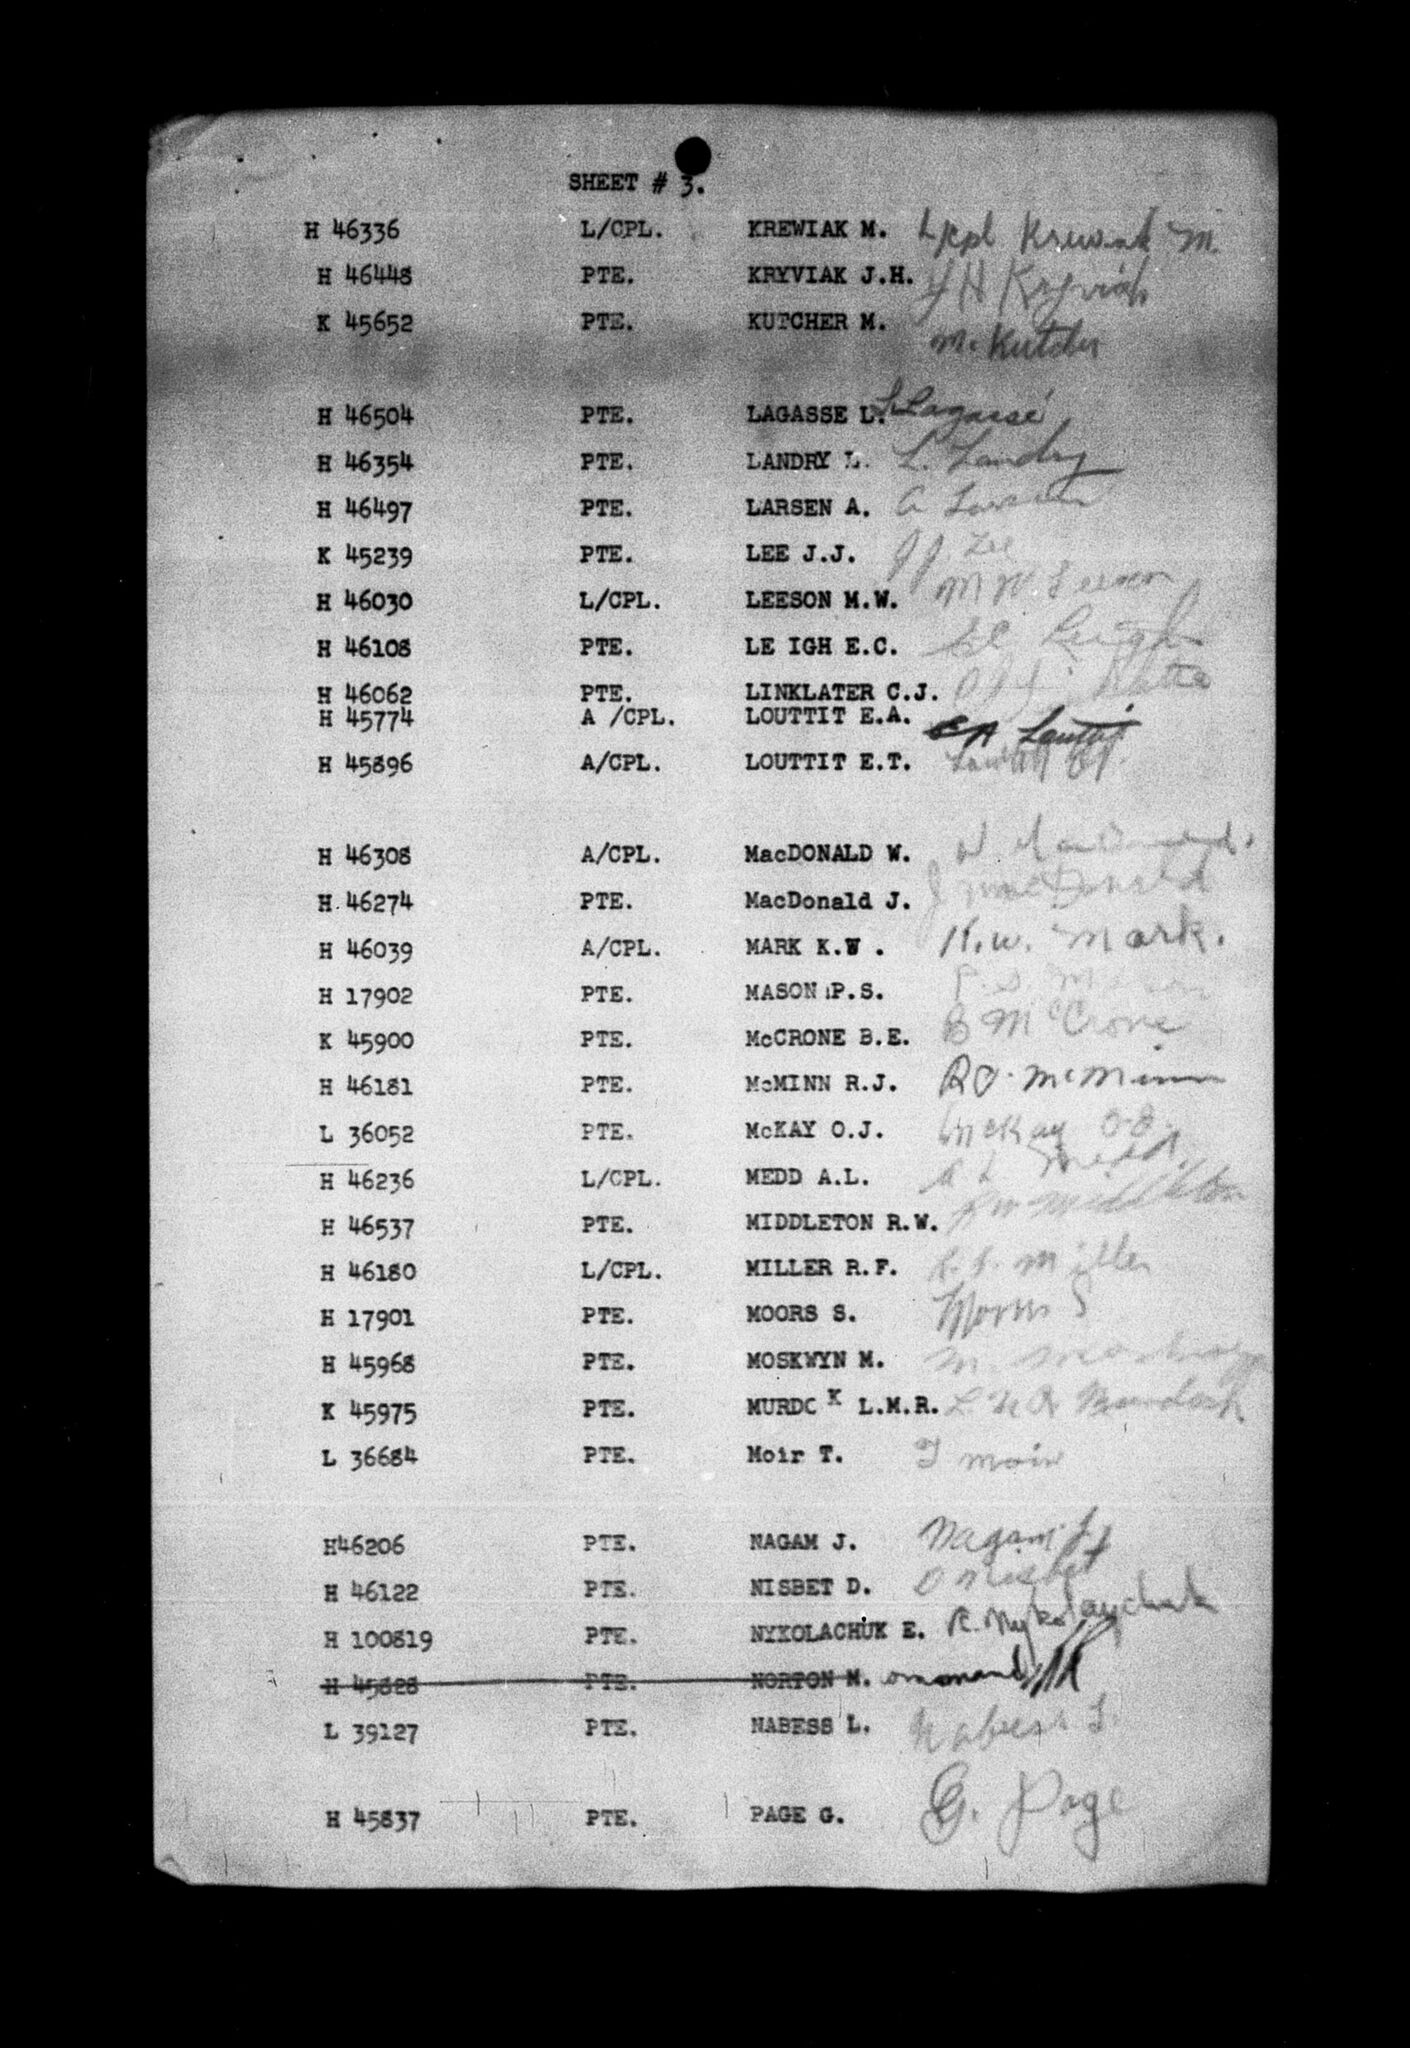 SHEET # 3.
H 46336 L/CPL. KREWIAK M. L/cpl Krewiak M.
H 46448 PTE. KRYVIAK J.H. J H Kryviak
K 45652 PTE. KUTCHER M. M. Kutcher
H 46504 PTE. LAGASSE L. L Lagassé
H 46354 PTE. LANDRY L. L. Landry
H 46497 PTE. LARSEN A. A Larsen
K 45239 PTE. LEE J.J. J J. Lee
H 46030 L/CPL. LEESON M.W. M W Leeson
H 46108 PTE. LE IGH E.C. E C Leigh
H 46062 PTE. LINKLATER C.J.
H 45774 A /CPL. LOUTTIT E.A. E A Louttit
H 45896 A/CPL. LOUTTIT E.T. Louttit E T.
H 46308 A/CPL. MacDONALD W. W MacDonald.
H 46274 PTE. MacDonald J. J MacDonald
H 46039 A/CPL. MARK K.W . K. W. Mark.
H 17902 PTE. MASON P.S. P. S Mason
K 45900 PTE. McCRONE B.E. B McCrone
H 46181 PTE. McMINN R.J. R J. McMinn
L 36052 PTE. McKAY O.J. McKay O. J.
H 46236 L/CPL. MEDD A.L. A L Medd
H 46537 PTE. MIDDLETON R.W. R W Middleton
H 46180 L/CPL. MILLER R.F. R. F. Miller
H 17901 PTE. MOORS S. Moors S
H 45968 PTE. MOSKWYN M. M.
K 45975 PTE. MURDC K L.M.R. L. M R Murdock
L 36684 PTE. Moir T. T Moir
H46206 PTE. NAGAM J. Nagam J.
H 46122 PTE. NISBET D. D Nisbet
H 100819 PTE. NYKOLACHUK E. E. Nykolaychuk
H 45828 PTE. NORTON M.
L 39127 PTE. NABESS L. Nabess L.
H 45837 PTE. PAGE G. G. Page